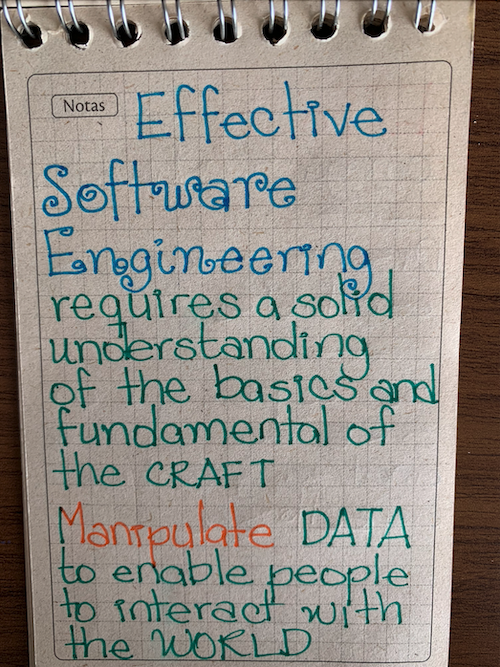 Notas
Effective
Software
Engineering
requires a solid
understanding
of the basics and
fundamental of
the CRAFT
Manipulate DATA
to enable people
to interact with
the WORLD